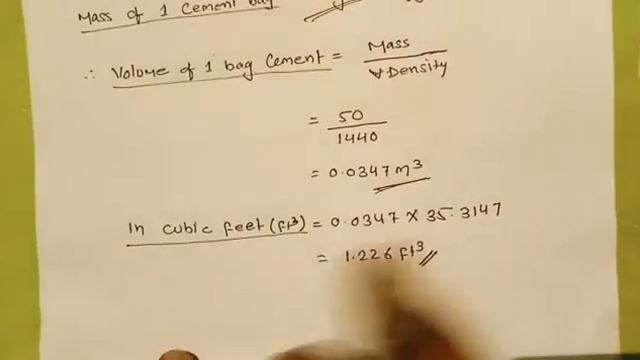 Mass of 1 Cement bag
∴ Volume of 1 bag Cement = Mass / Density
= 50 / 1440
= 0.0347 m³
In cubic feet (ft³) = 0.0347 × 35.3147
= 1.226 ft³